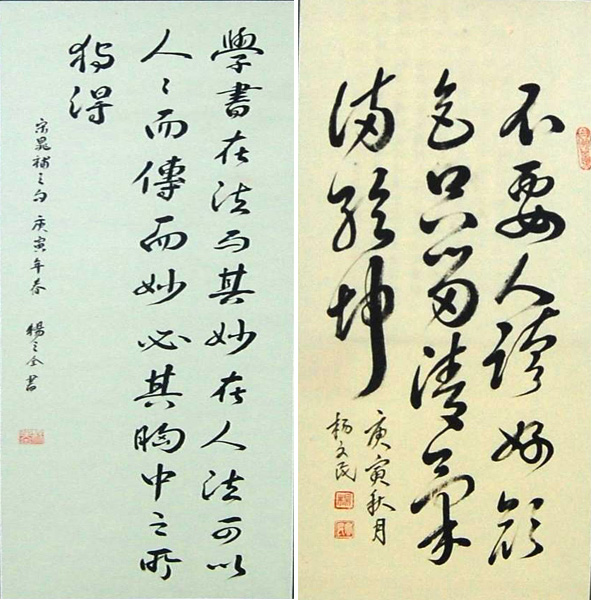 學書在法而其妙在人法可以
人〻而傳而妙必其胸中之所
獨得
宋晁補之句 庚寅年春 楊之全書
不要人誇好顏
色只留清氣
滿乾坤
庚寅秋月
杨文民